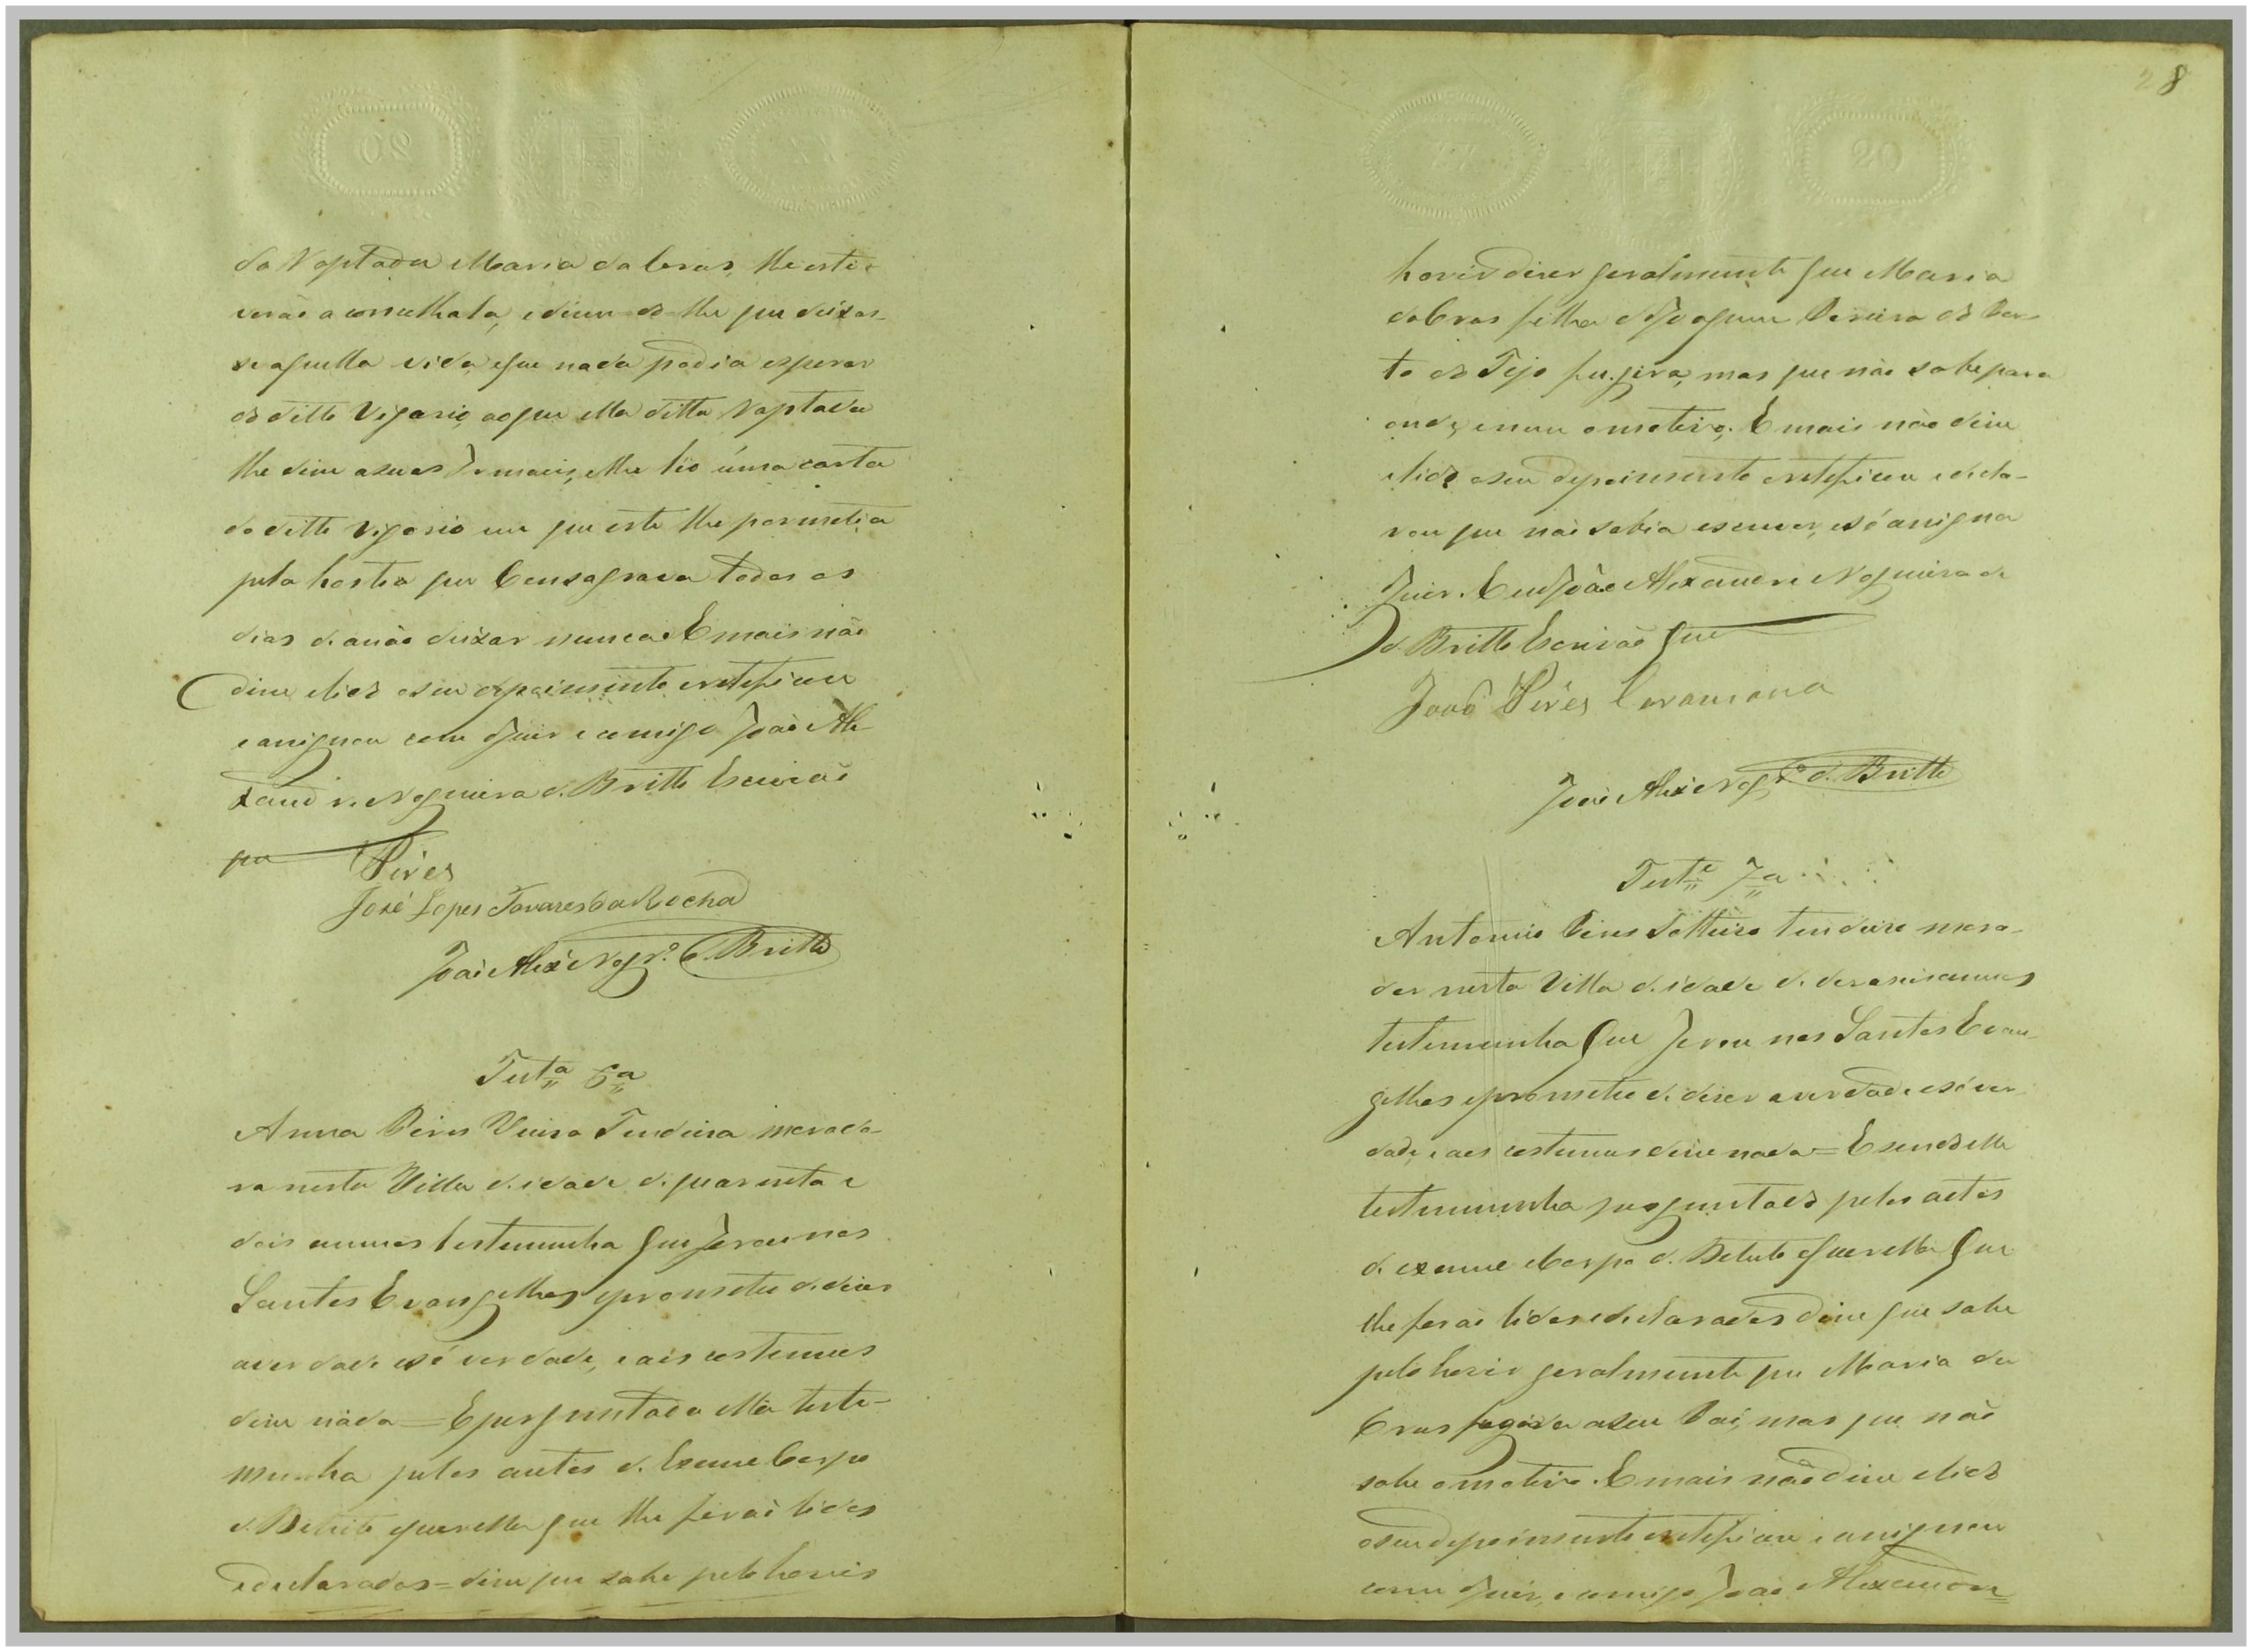 da Raptada Maria da Cruz, lhe esti-
verão a conselhala, e dicerão lhe que deixas-
se aquella vida, e que nada podia esperar
do ditto Vigario, ao que ella ditta Raptada
lhe dice a suas Irmais, e lhe lêo uma carta
do ditto Vigario em que este lhe permetia
pela hostia que Consagrava todos os
dias de a não deixar nunca E mais não
dice e lido o seu depoimento o reteficou
e asignou com o Juiz e comigo João Ale-
xandre Nogueira de Britto Escrivão
que
Pires
José Lopes Tavares da Rocha
João Alexe Nogra de Britto
Testa 6a
Anna Pires Viuva Tendeira morado-
ra nesta Villa de idade de quarenta e
dois annos testemunha que Jurou nos
Santos Evangelhos e prometeu de dizer
averdade e só verdade, e aos costumes
dice nada = E perguntada ella teste-
munha pelos autos de Exame Corpo
de Delicto e querella que lhe forão lidos
e declarados = dice que sabe pelo houvir
28
hovir dizer geralmente que Maria
da Cruz filha de Joaquim Pereira do Por-
to do Tejo fugira, mas que não sabe para
onde, e nem o motivo. E mais não dice
e lido o seu depoimento o reteficou e decla-
rou que não sabia escrever, e só asigna
o Juiz. E eu João Alexandre Nogueira de
de Britto Escrivão que
João Pires Caramona
João Alexe Nogra de Britto
Teste 7a
Antonio Pires Solteiro tendeiro mora-
dor nesta Villa de idade de dezaseis annos
testemunha que Jurou nos Santos Evan-
gelhos e prometeu de dizer a verdade e só ver-
dade, e aos costumes dice nada = E sendo elle
testemunha perguntado pelos autos
de exame e Corpo de Delicto e querella que
lhe forão lidos e declarados dice que sabe
pelo hovir geralmente que Maria da
Cruz fugira a seu Pai, mas que não
sabe o motivo. E mais não dice e lido
o seu depoimento o reteficou e asignou
com o Juiz, e comigo João Alexandre
20
20